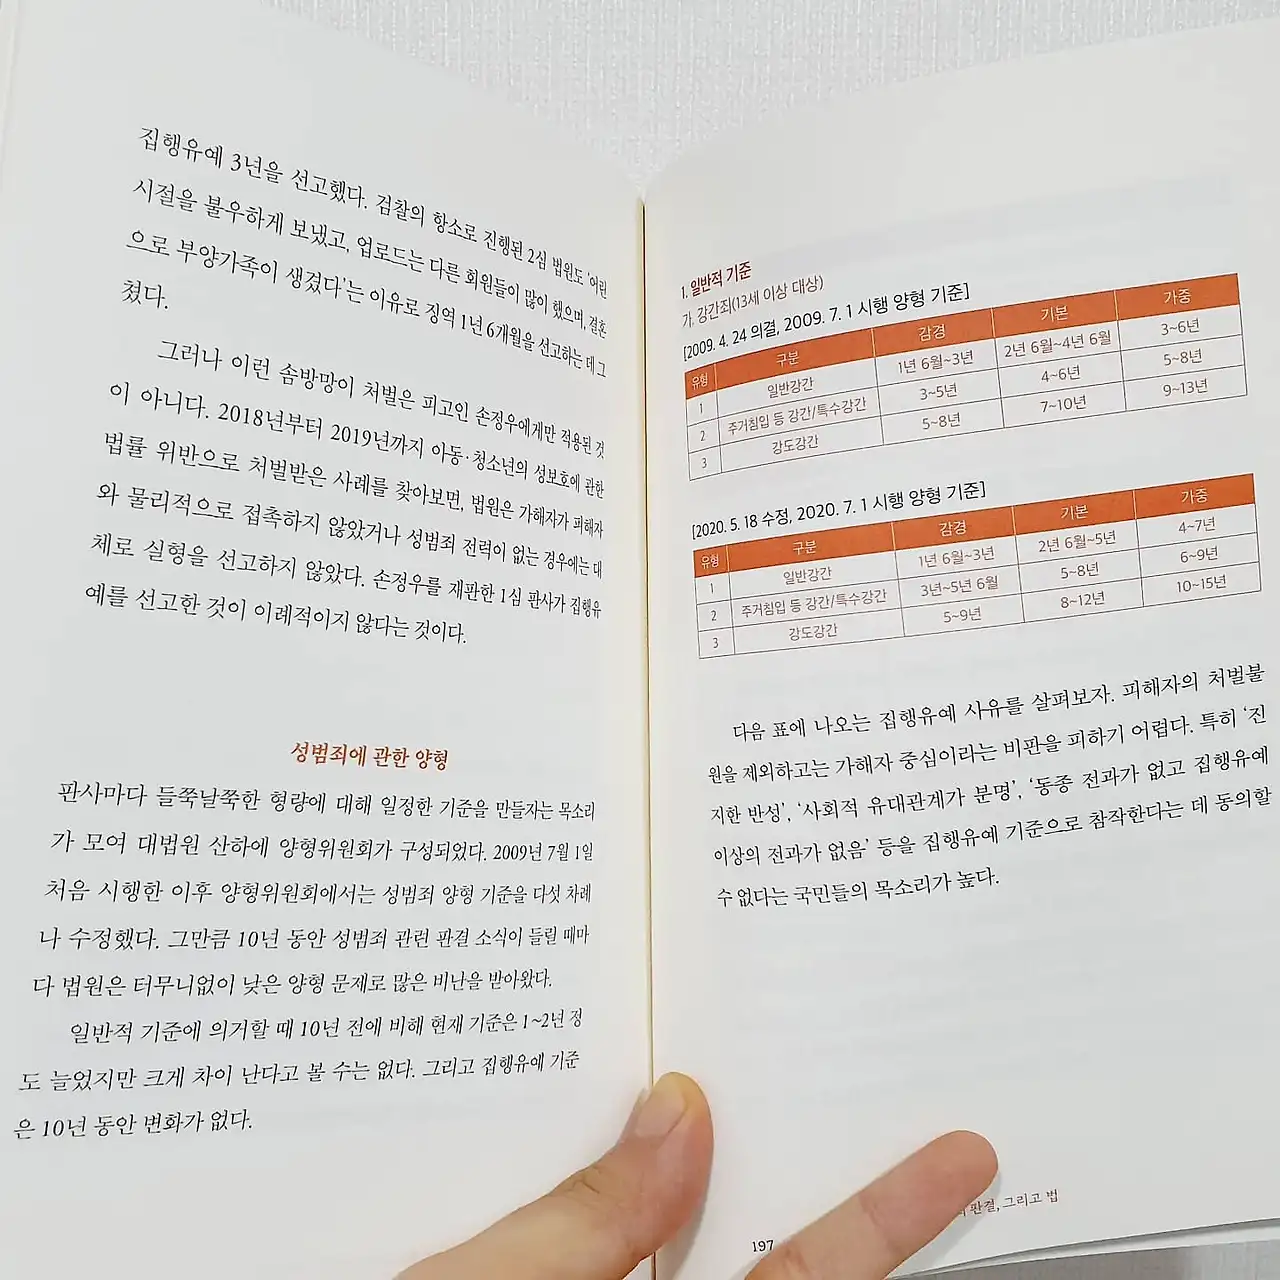 집행유예 3년을 선고했다. 검찰의 항소로 진행된 2심 법원도 ‘어린
시절을 불우하게 보냈고, 업로드는 다른 회원들이 많이 했으며, 결혼
으로 부양가족이 생겼다’는 이유로 징역 1년 6개월을 선고하는 데 그
쳤다.
그러나 이런 솜방망이 처벌은 피고인 손정우에게만 적용된 것
이 아니다. 2018년부터 2019년까지 아동·청소년의 성보호에 관한
법률 위반으로 처벌받은 사례를 찾아보면, 법원은 가해자가 피해자
와 물리적으로 접촉하지 않았거나 성범죄 전력이 없는 경우에는 대
체로 실형을 선고하지 않았다. 손정우를 재판한 1심 판사가 집행유
예를 선고한 것이 이례적이지 않다는 것이다.
성범죄에 관한 양형
판사마다 들쭉날쭉한 형량에 대해 일정한 기준을 만들자는 목소리
가 모여 대법원 산하에 양형위원회가 구성되었다. 2009년 7월 1일
처음 시행한 이후 양형위원회에서는 성범죄 양형 기준을 다섯 차례
나 수정했다. 그만큼 10년 동안 성범죄 관련 판결 소식이 들릴 때마
다 법원은 터무니없이 낮은 양형 문제로 많은 비난을 받아왔다.
일반적 기준에 의거할 때 10년 전에 비해 현재 기준은 1~2년 정
도 늘었지만 크게 차이 난다고 볼 수는 없다. 그리고 집행유예 기준
은 10년 동안 변화가 없다.
1. 일반적 기준
가. 강간죄(13세 이상 대상)
[2009. 4. 24 의결, 2009. 7. 1 시행 양형 기준]
유형 구분 감경 기본 가중
1 일반강간 1년 6월~3년 2년 6월~4년 6월 3~6년
2 주거침입 등 강간/특수강간 3~5년 4~6년 5~8년
3 강도강간 5~8년 7~10년 9~13년
[2020. 5. 18 수정, 2020. 7. 1 시행 양형 기준]
유형 구분 감경 기본 가중
1 일반강간 1년 6월~3년 2년 6월~5년 4~7년
2 주거침입 등 강간/특수강간 3년~5년 6월 5~8년 6~9년
3 강도강간 5~9년 8~12년 10~15년
다음 표에 나오는 집행유예 사유를 살펴보자. 피해자의 처벌불
원을 제외하고는 가해자 중심이라는 비판을 피하기 어렵다. 특히 ‘진
지한 반성’, ‘사회적 유대관계가 분명’, ‘동종 전과가 없고 집행유예
이상의 전과가 없음’ 등을 집행유예 기준으로 참작한다는 데 동의할
수 없다는 국민들의 목소리가 높다.
197
판결, 그리고 법